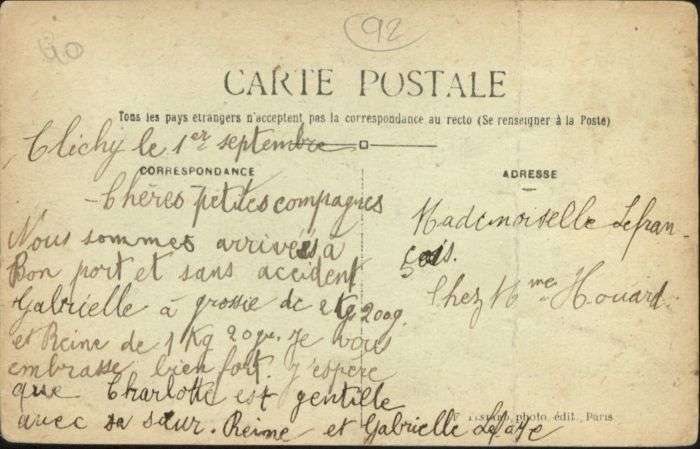 90
92
CARTE POSTALE
Tous les pays étrangers n'acceptent pas la correspondance au recto (Se renseigner à la Poste)
Clichy le 1er septembre
CORRESPONDANCE
ADRESSE
Chères petites compagnes
Nous sommes arrivées à
Bon port et sans accident
Gabrielle à grossie de 2 Kg 200g.
et Reine de 1 Kg 20gr. Je vous
embrasse bien fort. J'espère
que Charlotte est gentille
avec sa sœur. Reine et Gabrielle
Mademoiselle Lefran-
çois.
Chez Mme Houard.
photo. édit., Paris